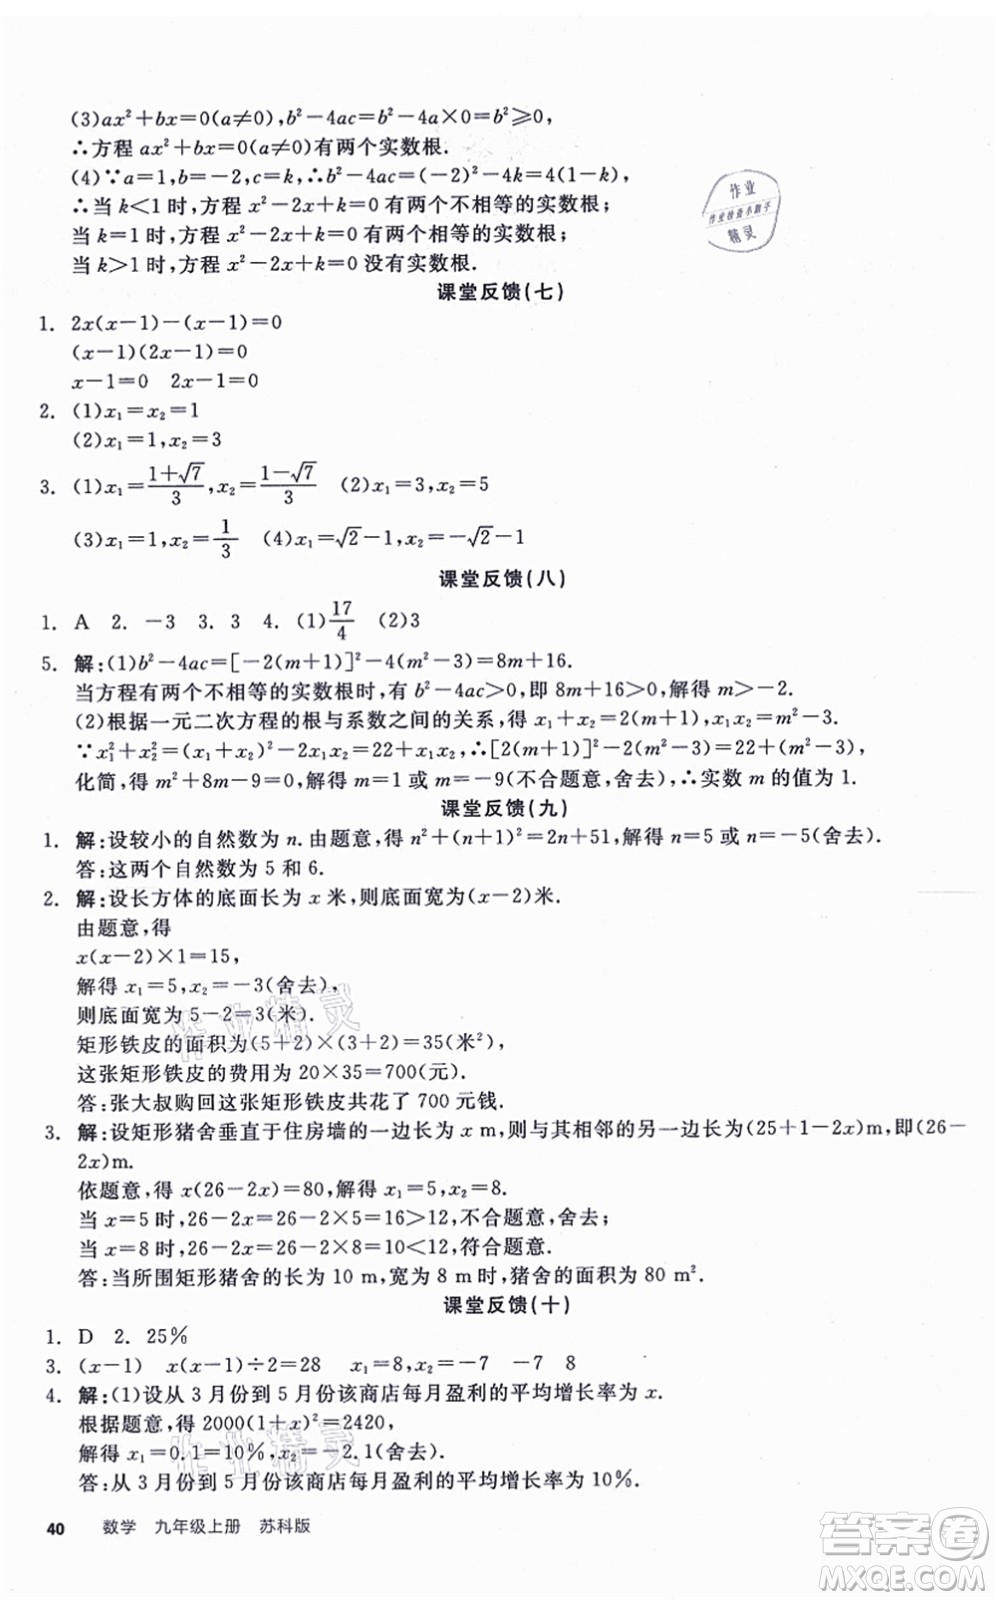 (3)ax²+bx=0(a≠0),b²-4ac=b²-4a×0=b²≥0,
∴方程 ax²+bx=0(a≠0)有两个实数根.
(4)∵a=1,b=-2,c=k,∴b²-4ac=(-2)²-4k=4(1-k),
∴当 k<1 时,方程 x²-2x+k=0 有两个不相等的实数根;
当 k=1 时,方程 x²-2x+k=0 有两个相等的实数根;
当 k>1 时,方程 x²-2x+k=0 没有实数根.
作业
作业检查小助手
精灵
课堂反馈(七)
1. 2x(x-1)-(x-1)=0
(x-1)(2x-1)=0
x-1=0 2x-1=0
2. (1)x₁=x₂=1
(2)x₁=1,x₂=3
3. (1)x₁=(1+√7)/3,x₂=(1-√7)/3 (2)x₁=3,x₂=5
(3)x₁=1,x₂=-1/3 (4)x₁=√2-1,x₂=-√2-1
课堂反馈(八)
1. A 2. -3 3. 3 4. (1)17/4 (2)3
5. 解:(1)b²-4ac=[-2(m+1)]²-4(m²-3)=8m+16.
当方程有两个不相等的实数根时,有 b²-4ac>0,即 8m+16>0,解得 m>-2.
(2)根据一元二次方程的根与系数之间的关系,得 x₁+x₂=2(m+1),x₁x₂=m²-3.
∵x₁²+x₂²=(x₁+x₂)²-2x₁x₂=22+x₁x₂,∴[2(m+1)]²-3(m²-3)=22+(m²-3),
化简,得 m²+8m-9=0,解得 m=1 或 m=-9(不合题意,舍去),∴实数 m 的值为 1.
课堂反馈(九)
1. 解:设较小的自然数为 n.由题意,得 n²+(n+1)²=2n+51,解得 n=5 或 n=-5(舍去).
答:这两个自然数为 5 和 6.
2. 解:设长方体的底面长为 x 米,则底面宽为(x-2)米.
由题意,得
x(x-2)×1=15,
解得 x₁=5,x₂=-3(舍去),
则底面宽为 5-2=3(米).
矩形铁皮的面积为(5+2)×(3+2)=35(米²),
这张矩形铁皮的费用为 20×35=700(元).
答:张大叔购回这张矩形铁皮共花了 700 元钱.
作业精灵
3. 解:设矩形猪舍垂直于住房墙的一边长为 x m,则与其相邻的另一边长为(25+1-2x)m,即(26-
2x)m.
依题意,得 x(26-2x)=80,解得 x₁=5,x₂=8.
当 x=5 时,26-2x=26-2×5=16>12,不合题意,舍去;
当 x=8 时,26-2x=26-2×8=10<12,符合题意.
答:当所围矩形猪舍的长为 10 m,宽为 8 m 时,猪舍的面积为 80 m².
课堂反馈(十)
1. D 2. 25%
3. (x-1) x(x-1)÷2=28 x₁=8,x₂=-7 -7 8
4. 解:(1)设从 3 月份到 5 月份该商店每月盈利的平均增长率为 x.
根据题意,得 2000(1+x)²=2420,
解得 x₁=0.1=10%,x₂=-2.1(舍去).
答:从 3 月份到 5 月份该商店每月盈利的平均增长率为 10%.
作业精灵
40 数学 九年级上册 苏科版
答案圈
MXQE.COM